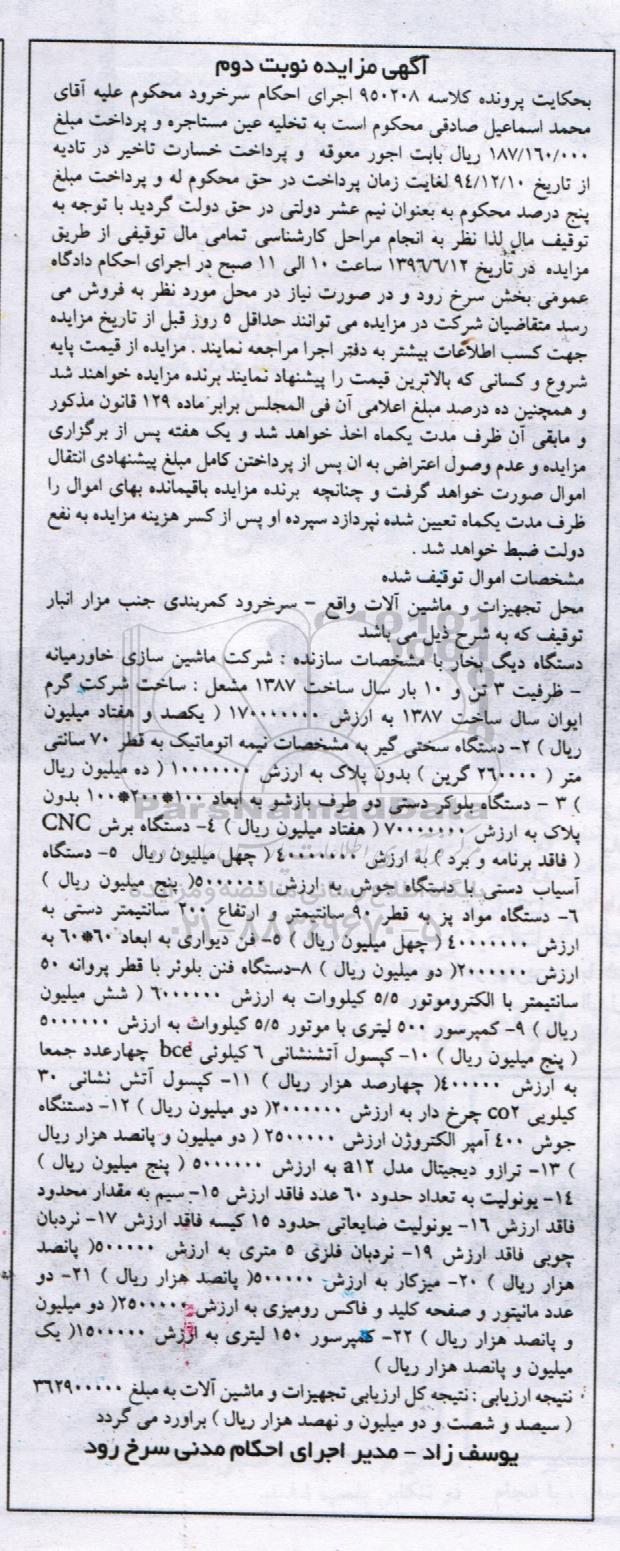 آگهی مزایده نوبت دوم
بحکایت پرونده کلاسه ۹۵۰۲۰۸ اجرای احکام سرخرود محکوم علیه آقای
محمد اسماعیل صادقی محکوم است به تخلیه عین مستاجره و پرداخت مبلغ
۱۸۷/۱۶۰/۰۰۰ ریال بابت اجور معوقه و پرداخت خسارت تاخیر در تادیه
از تاریخ ۹۴/۱۲/۱۰ لغایت زمان پرداخت در حق محکوم له و پرداخت مبلغ
پنج درصد محکوم به بعنوان نیم عشر دولتی در حق دولت گردید با توجه به
توقیف مال لذا نظر به انجام مراحل کارشناسی تمامی مال توقیفی از طریق
مزایده در تاریخ ۱۳۹۶/۶/۱۲ ساعت ۱۰ الی ۱۱ صبح در اجرای احکام دادگاه
عمومی بخش سرخ رود و در صورت نیاز در محل مورد نظر به فروش می
رسد متقاضیان شرکت در مزایده می توانند حداقل ۵ روز قبل از تاریخ مزایده
جهت کسب اطلاعات بیشتر به دفتر اجرا مراجعه نمایند . مزایده از قیمت پایه
شروع و کسانی که بالاترین قیمت را پیشنهاد نمایند برنده مزایده خواهند شد
و همچنین ده درصد مبلغ اعلامی آن فی المجلس برابر ماده ۱۲۹ قانون مذکور
و مابقی آن ظرف مدت یکماه اخذ خواهد شد و یک هفته پس از برگزاری
مزایده و عدم وصول اعتراض به ان پس از پرداختن کامل مبلغ پیشنهادی انتقال
اموال صورت خواهد گرفت و چنانچه برنده مزایده باقیمانده بهای اموال را
ظرف مدت یکماه تعیین شده نپردازد سپرده او پس از کسر هزینه مزایده به نفع
دولت ضبط خواهد شد .
مشخصات اموال توقیف شده
محل تجهیزات و ماشین آلات واقع – سرخرود کمربندی جنب مزار انبار
توقیف که به شرح ذیل می باشد
دستگاه دیگ بخار با مشخصات سازنده : شرکت ماشین سازی خاورمیانه
– ظرفیت ۳ تن و ۱۰ بار سال ساخت ۱۳۸۷ مشعل : ساخت شرکت گرم
ایوان سال ساخت ۱۳۸۷ به ارزش ۱۷۰۰۰۰۰۰۰ ( یکصد و هفتاد میلیون
ریال ) ۲- دستگاه سختی گیر به مشخصات نیمه اتوماتیک به قطر ۷۰ سانتی
متر ( ۲۶۰۰۰۰ گرین ) بدون پلاک به ارزش ۱۰۰۰۰۰۰۰ ( ده میلیون ریال
) ۳ – دستگاه بلوکر دستی دو طرف بازشو به ابعاد ۱۰۰*۲۰۰*۱۰۰ بدون
پلاک به ارزش ۷۰۰۰۰۰۰۰ ( هفتاد میلیون ریال ) ۴- دستگاه برش CNC
( فاقد برنامه و برد ) به ارزش ۴۰۰۰۰۰۰۰ ( چهل میلیون ریال ۵- دستگاه
آسیاب دستی با دستگاه جوش به ارزش ۵۰۰۰۰۰۰( پنج میلیون ریال )
۶- دستگاه مواد پز به قطر ۹۰ سانتیمتر و ارتفاع ۲۰۰ سانتیمتر دستی به
ارزش ۴۰۰۰۰۰۰۰ ( چهل میلیون ریال ) ۵- فن دیواری به ابعاد ۶۰*۶۰ به
ارزش ۲۰۰۰۰۰۰( دو میلیون ریال ) ۸-دستگاه فنن بلوئر با قطر پروانه ۵۰
سانتیمتر با الکتروموتور ۵/۵ کیلووات به ارزش ۶۰۰۰۰۰۰ ( شش میلیون
ریال ) ۹- کمپرسور ۵۰۰ لیتری با موتور ۵/۵ کیلووات به ارزش ۵۰۰۰۰۰۰
( پنج میلیون ریال ) ۱۰- کپسول آتشنشانی ۶ کیلوئی bce چهارعدد جمعا
به ارزش ۴۰۰۰۰۰( چهارصد هزار ریال ) ۱۱- کپسول آتش نشانی ۳۰
کیلویی co۲ چرخ دار به ارزش ۲۰۰۰۰۰۰( دو میلیون ریال ) ۱۲- دستنگاه
جوش ۴۰۰ آمپر الکتروژن ارزش ۲۵۰۰۰۰۰ ( دو میلیون و پانصد هزار ریال
) ۱۳- ترازو دیجیتال مدل a۱۲ به ارزش ۵۰۰۰۰۰۰ ( پنج میلیون ریال )
۱۴- یونولیت به تعداد حدود ۶۰ عدد فاقد ارزش ۱۵- سیم به مقدار محدود
فاقد ارزش ۱۶- یونولیت ضایعاتی حدود ۱۵ کیسه فاقد ارزش ۱۷- نردبان
چوبی فاقد ارزش ۱۹- نردبان فلزی ۵ متری به ارزش ۵۰۰۰۰۰( پانصد
هزار ریال ) ۲۰- میزکار به ارزش ۵۰۰۰۰۰( پانصد هزار ریال ) ۲۱- دو
عدد مانیتور و صفحه کلید و فاکس رومیزی به ارزش ۲۵۰۰۰۰۰( دو میلیون
و پانصد هزار ریال ) ۲۲- کمپرسور ۱۵۰ لیتری به ارزش ۱۵۰۰۰۰۰( یک
میلیون و پانصد هزار ریال )
نتیجه ارزیابی : نتیجه کل ارزیابی تجهیزات و ماشین آلات به مبلغ ۳۶۲۹۰۰۰۰۰
( سیصد و شصت و دو میلیون و نهصد هزار ریال ) براورد می گردد
یوسف زاد – مدیر اجرای احکام مدنی سرخ رود
ParsNamadData
پایگاه اطلاع رسانی مناقصه و مزایده
۰۲۱-۸۸۳۴۹۶۷۰-۵